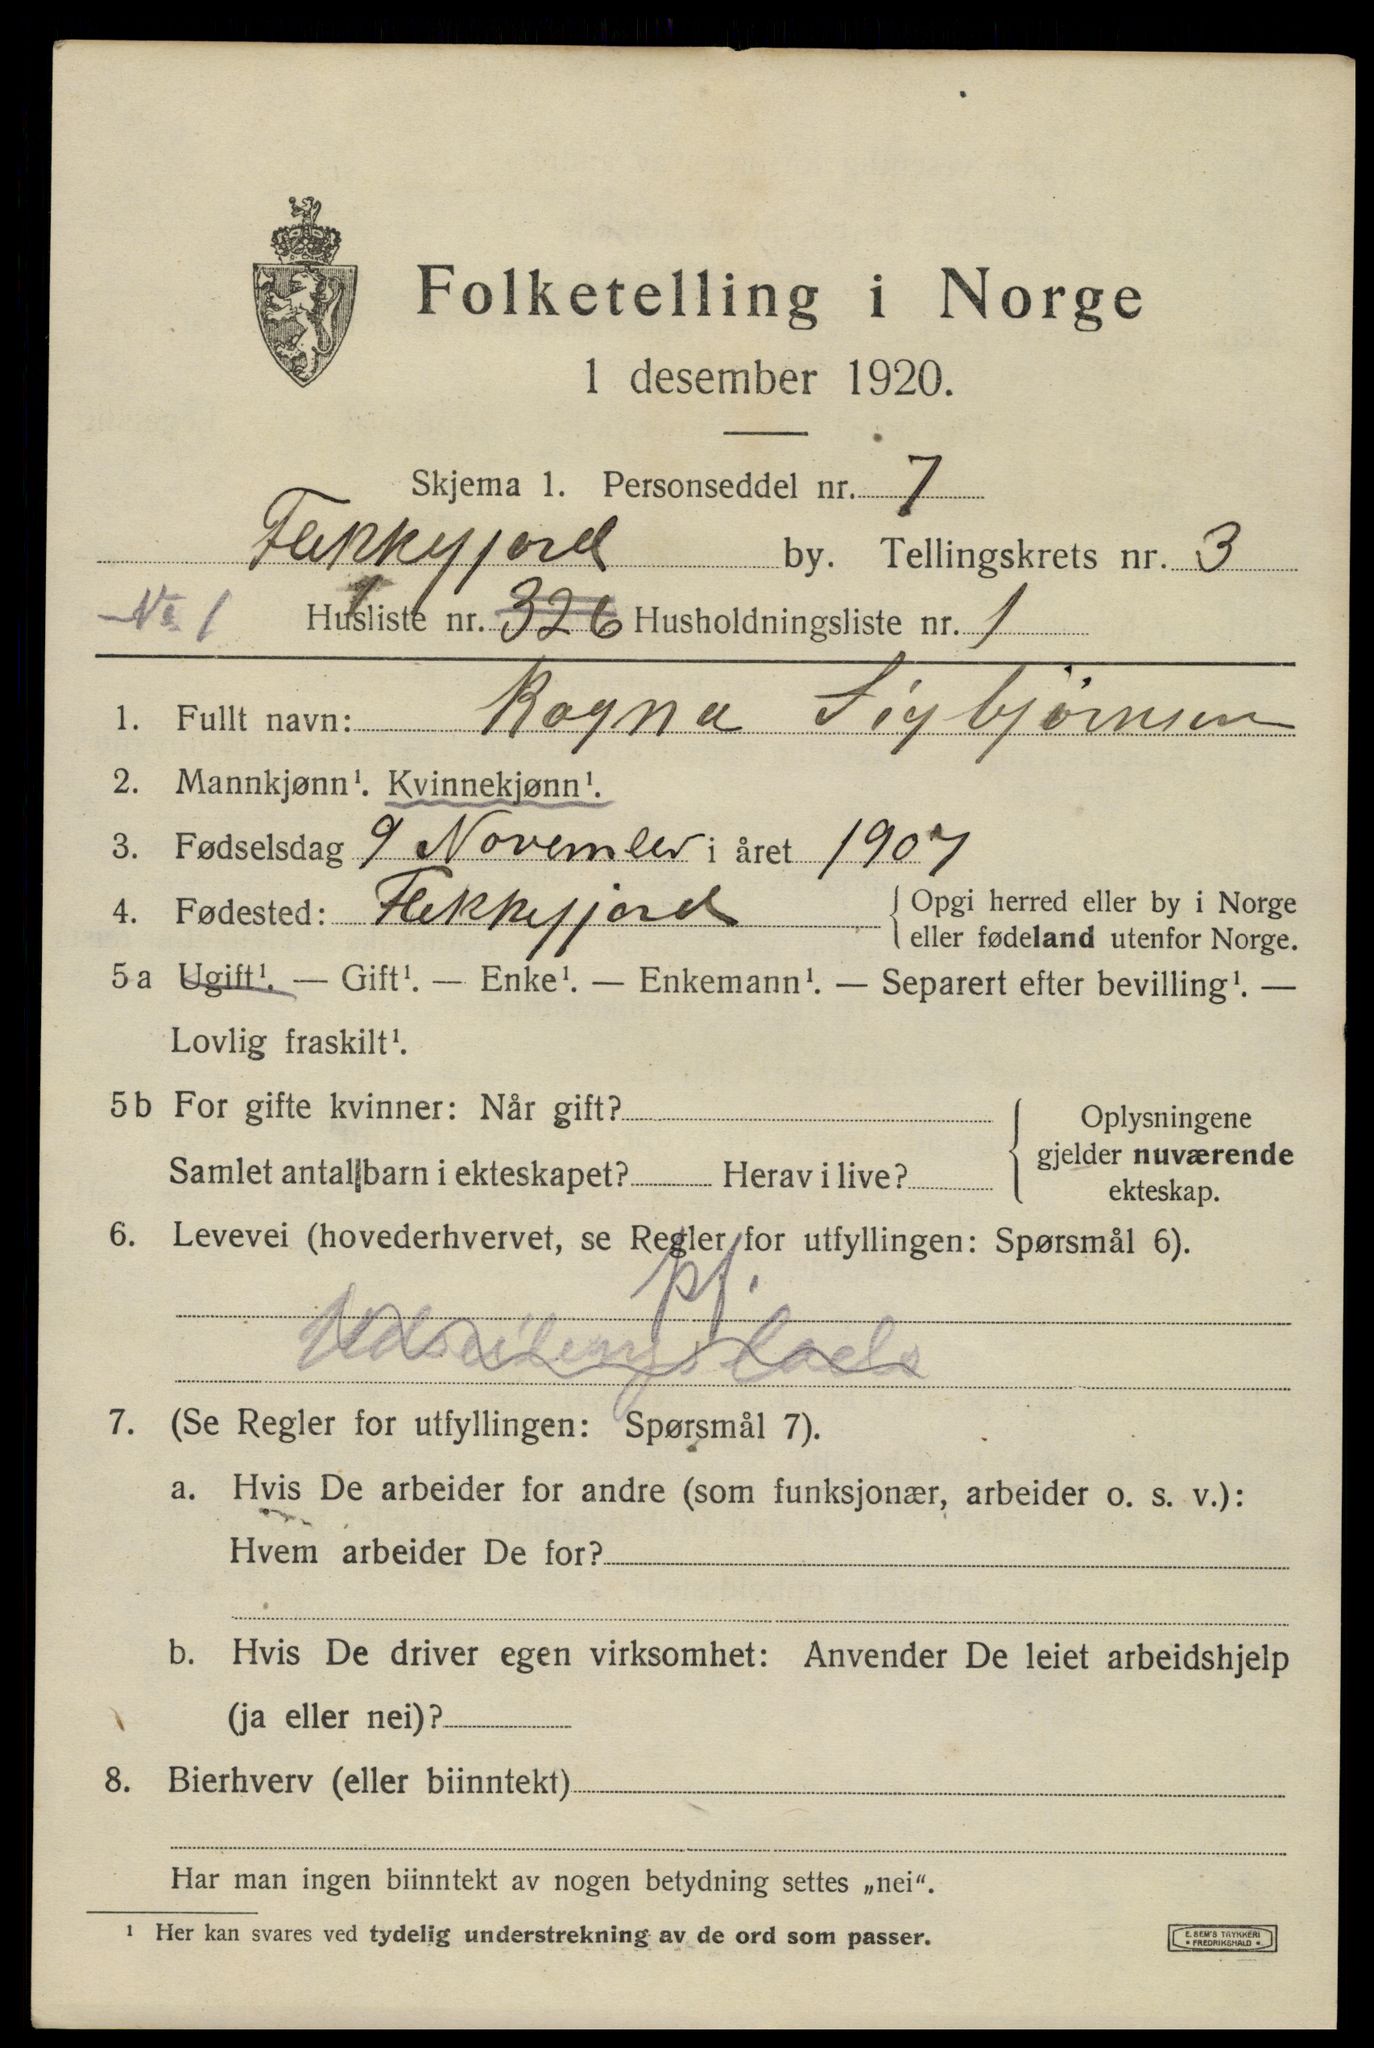 Folketelling i Norge
1 desember 1920.
Skjema 1. Personseddel nr. 7
Flekkefjord by. Tellingskrets nr. 3
No. 1 Husliste nr. 326 Husholdningsliste nr. 1
1. Fullt navn: Ragna Sigbjørnsen
2. Mannkjønn¹. Kvinnekjønn¹.
3. Fødselsdag 9 November i året 1907
4. Fødested: Flekkefjord { Opgi herred eller by i Norge
eller fødeland utenfor Norge.
5a Ugift¹. — Gift¹. — Enke¹. — Enkemann¹. — Separert efter bevilling¹. —
Lovlig fraskilt¹.
5b For gifte kvinner: Når gift?
Samlet antal barn i ekteskapet? Herav i live?
{ Oplysningene
gjelder nuværende
ekteskap.
6. Levevei (hovederhvervet, se Regler for utfyllingen: Spørsmål 6).
7. (Se Regler for utfyllingen: Spørsmål 7).
a. Hvis De arbeider for andre (som funksjonær, arbeider o. s. v.):
Hvem arbeider De for?
b. Hvis De driver egen virksomhet: Anvender De leiet arbeidshjelp
(ja eller nei)?
8. Bierhverv (eller biinntekt)
Har man ingen biinntekt av nogen betydning settes „nei“.
¹ Her kan svares ved tydelig understrekning av de ord som passer.
E. SEM'S TRYKKERI
• FREDRIKSHALD •